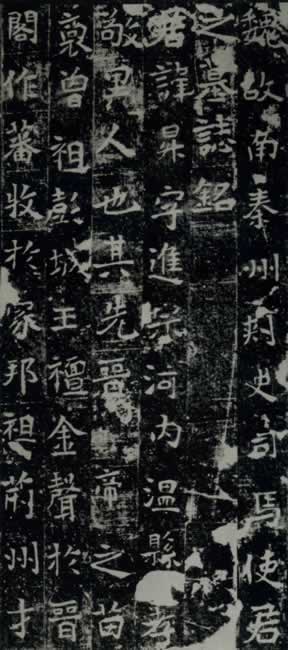 魏故南秦州刺史司馬使君
之墓誌銘
君諱昇字進宗河內溫縣孝
敬里人也其先晉帝之苗
裔曾祖彭城王襢金聲於晉
閣作蕃牧於家邦祖荊州才